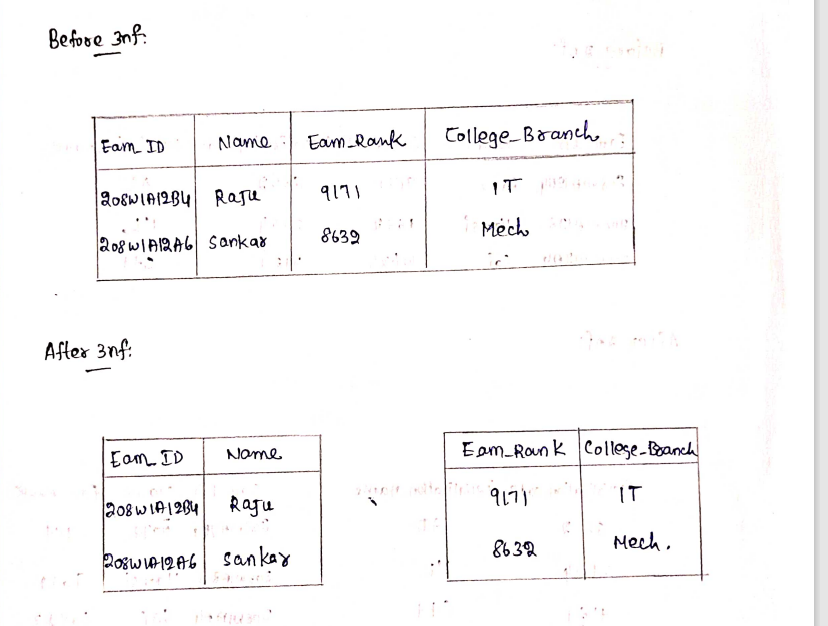 Before 3nf:
Eam_ID Name Eam_Rank College_Branch
208W1A12B4 Raju 9171 IT
208W1A12A6 Sankar 8632 Mech
After 3nf:
Eam_ID Name
208W1A12B4 Raju
208W1A12A6 Sankar
Eam_Rank College_Branch
9171 IT
8632 Mech.